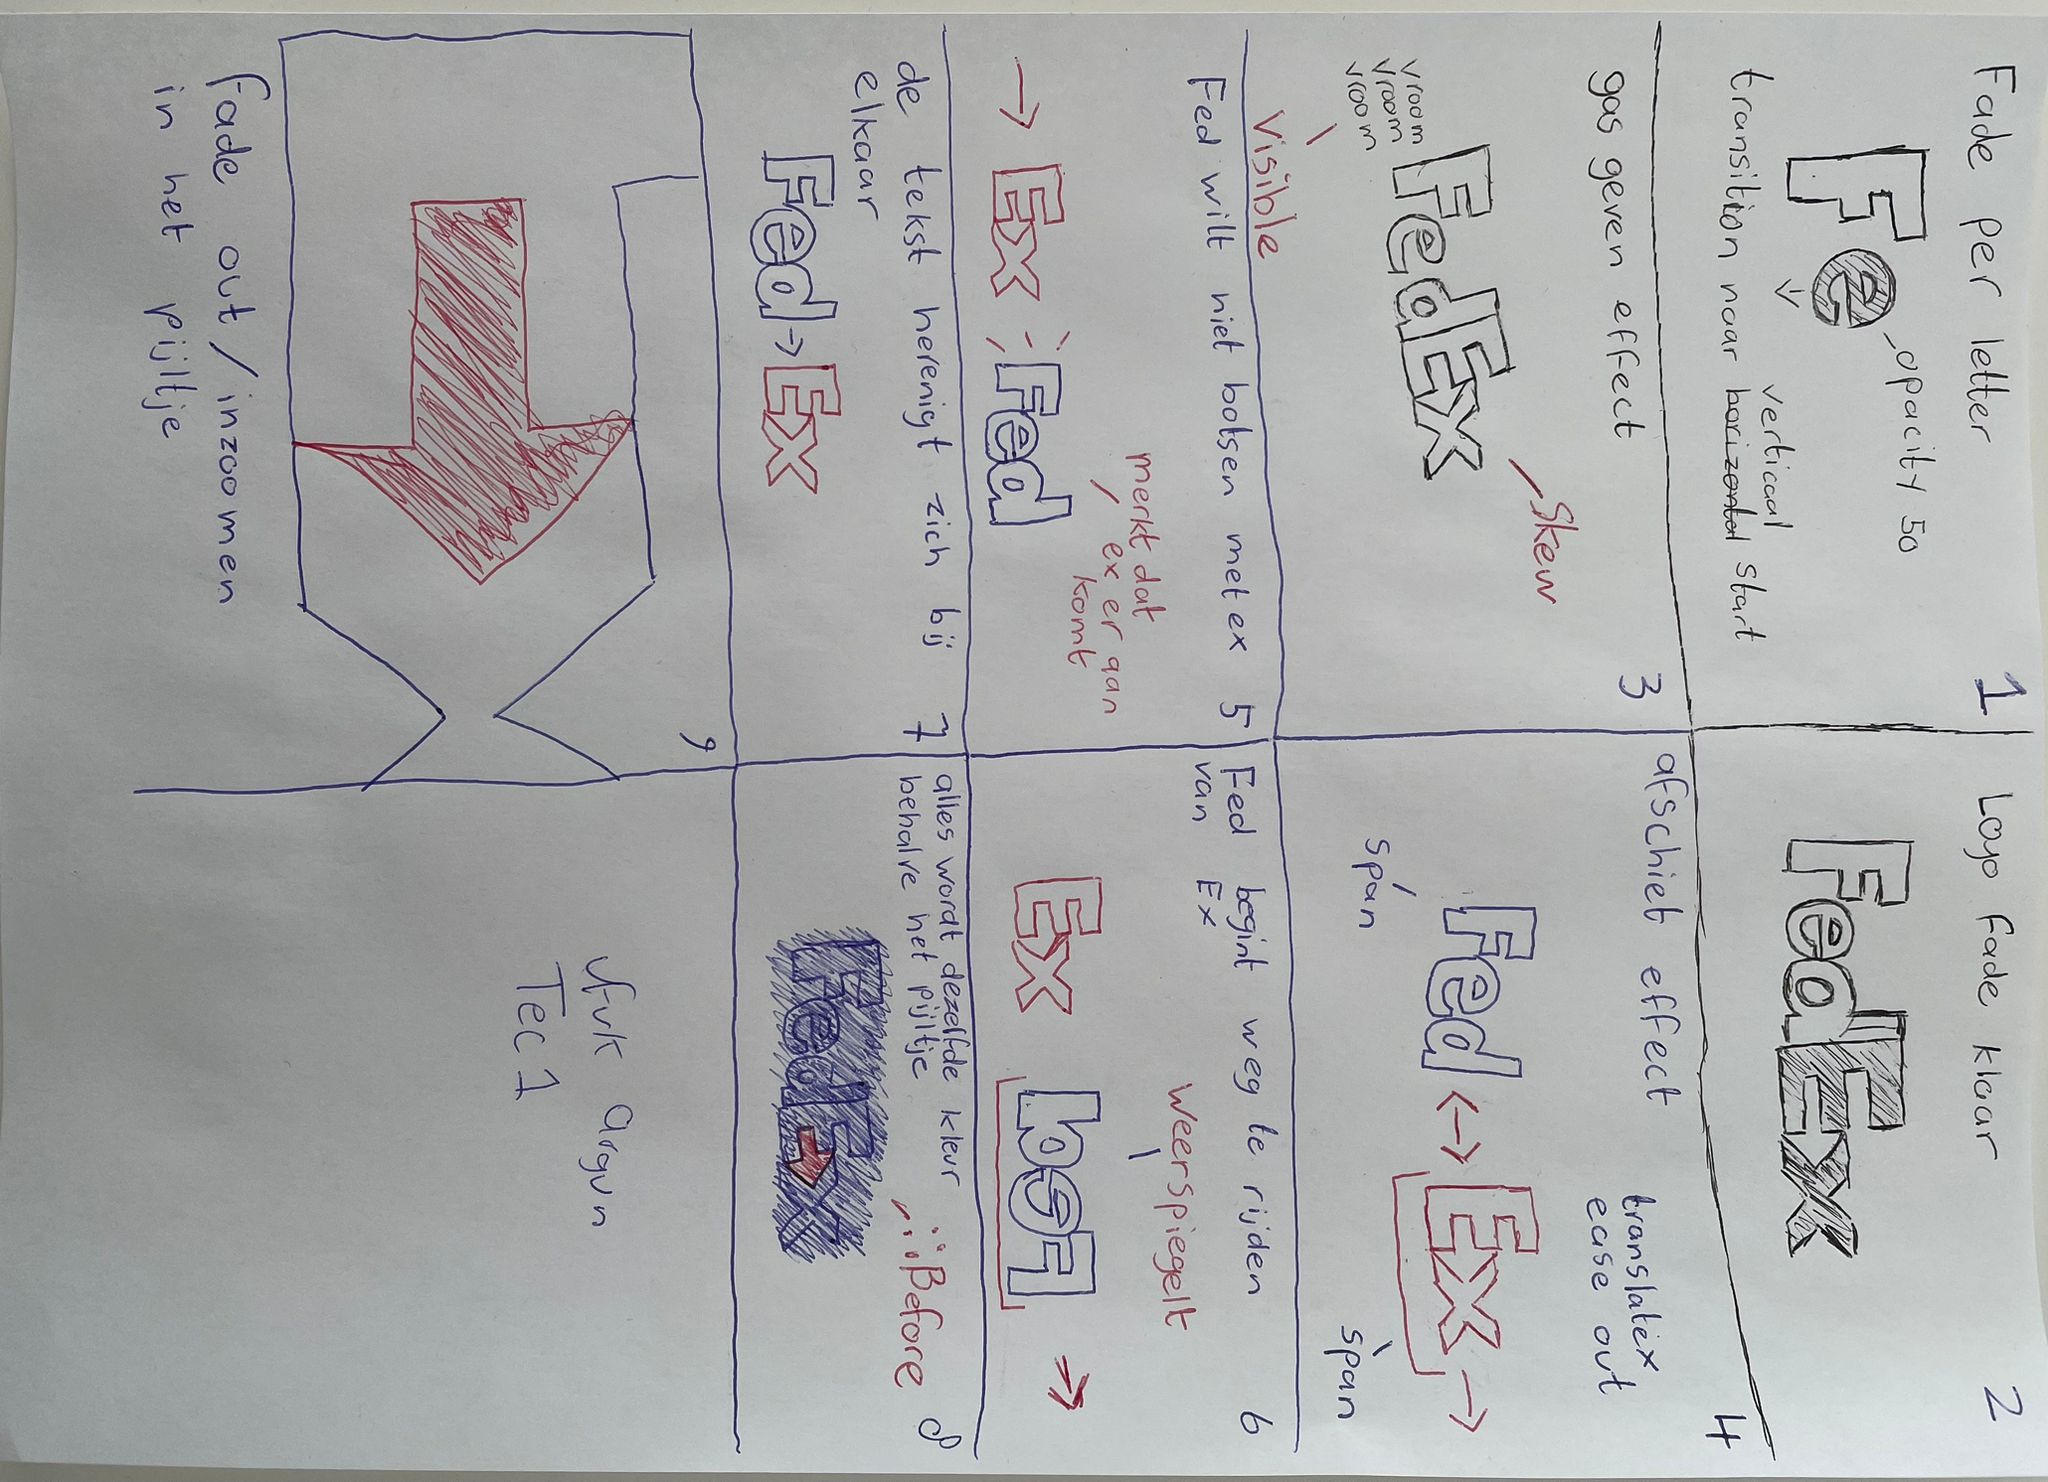 Fade per letter
1
Fe
opacity 50
transition naar horizontal start
verticaal
Logo fade klaar
2
FedEx
gas geven effect
3
vroom
vroom
vroom
FedEx
Skew
afschiet effect
4
translatex
ease out
Fed
Ex
span
span
visible
Fed wilt niet botsen met ex
5
Ex
Fed
merkt dat
ex er aan
komt
Fed begint weg te rijden
van Ex
6
weerspiegelt
Ex
Fed
de tekst herenigt zich bij
elkaar
7
Fed
Ex
alles wordt dezelfde kleur
behalve het pijltje
8
::Before
FedEx
9
fade out/inzoomen
in het pijltje
Ufuk Argun
Tec 1